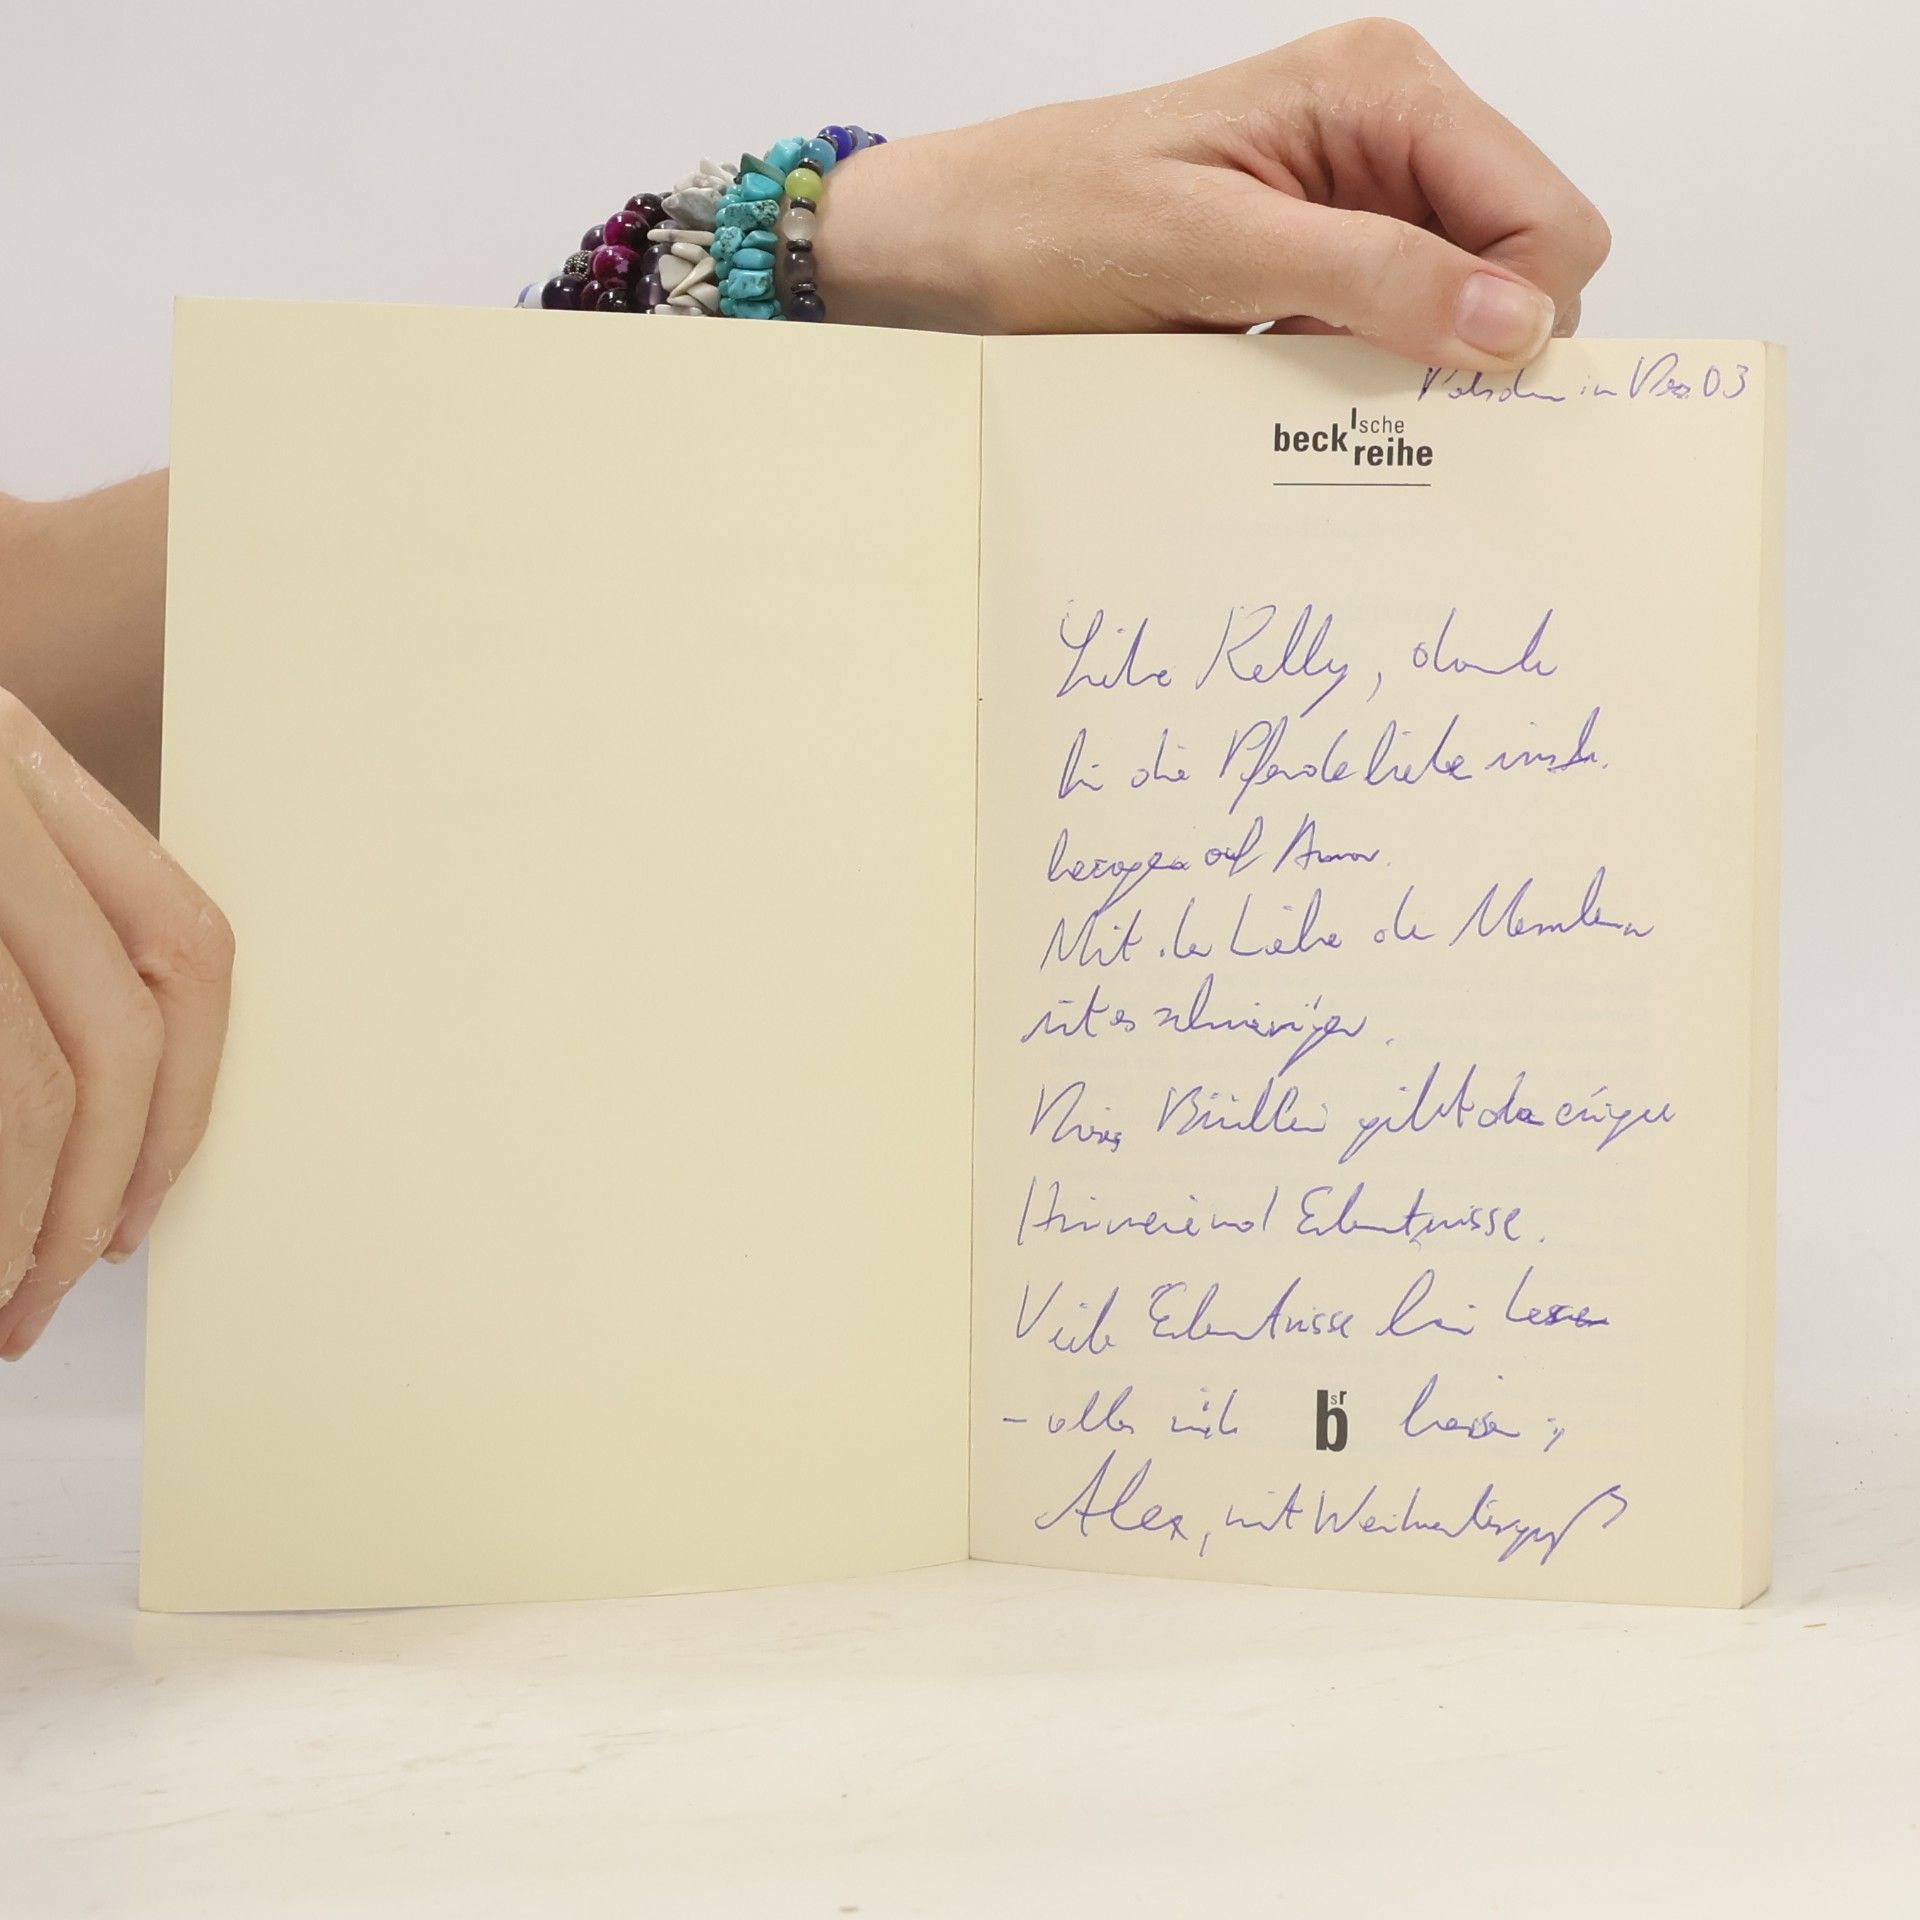 Potsdam im Dez. 03
beck'sche
reihe
Liebe Kelly, danke
für die Pferdeliebe insb.
bezogen auf Amor.
Mit der Liebe der Menschen
ist es schwieriger.
Dieses Büchlein gibt da einige
Hinweise und Erkenntnisse.
Viele Erkenntnisse beim Lesen
- alles
bsr
Alex, mit Weihnachtsgruß